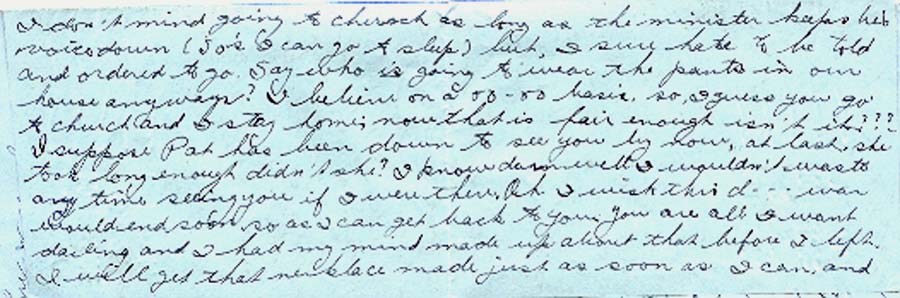 I don't mind going to church as long as the minister keeps his
voice down (so's I can go to sleep) but, I sure hate to be told
and ordered to go. Say who is going to wear the pants in our
house anyways? I believe on a 50-50 basis. so, I guess you go
to church and I stay home; now that is fair enough isn't it???
I suppose Pat has been down to see you by now, at last. she
took long enough didn't she? I know darn well I wouldn't waste
any time seeing you if I were there. Oh I wish this d--- war
would end soon so as I can get back to you. you are all I want
darling and I had my mind made up about that before I left.
I will get that necklace made just as soon as I can, and